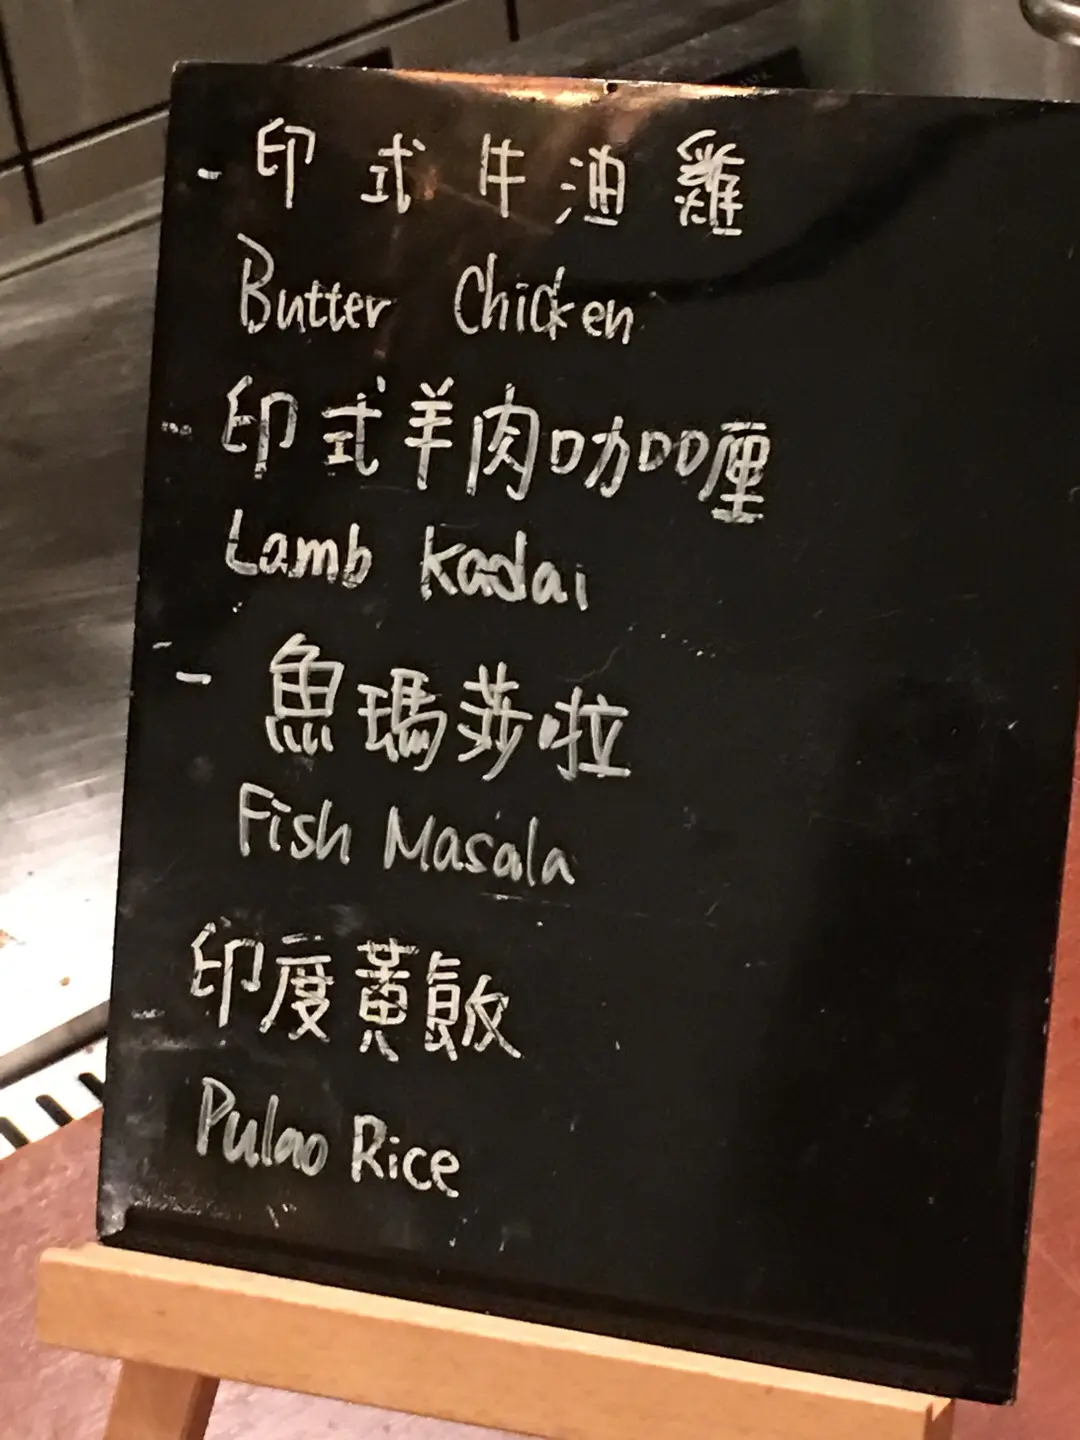 - 印式牛油雞
Butter Chicken
- 印式羊肉咖喱
Lamb Kadai
- 魚瑪莎啦
Fish Masala
印度黃飯
Pulao Rice